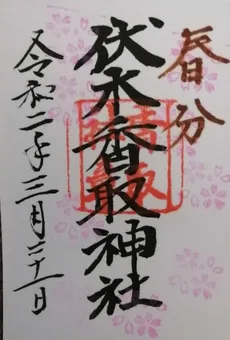 春分
伏木香取神社
令和二年三月二十一日